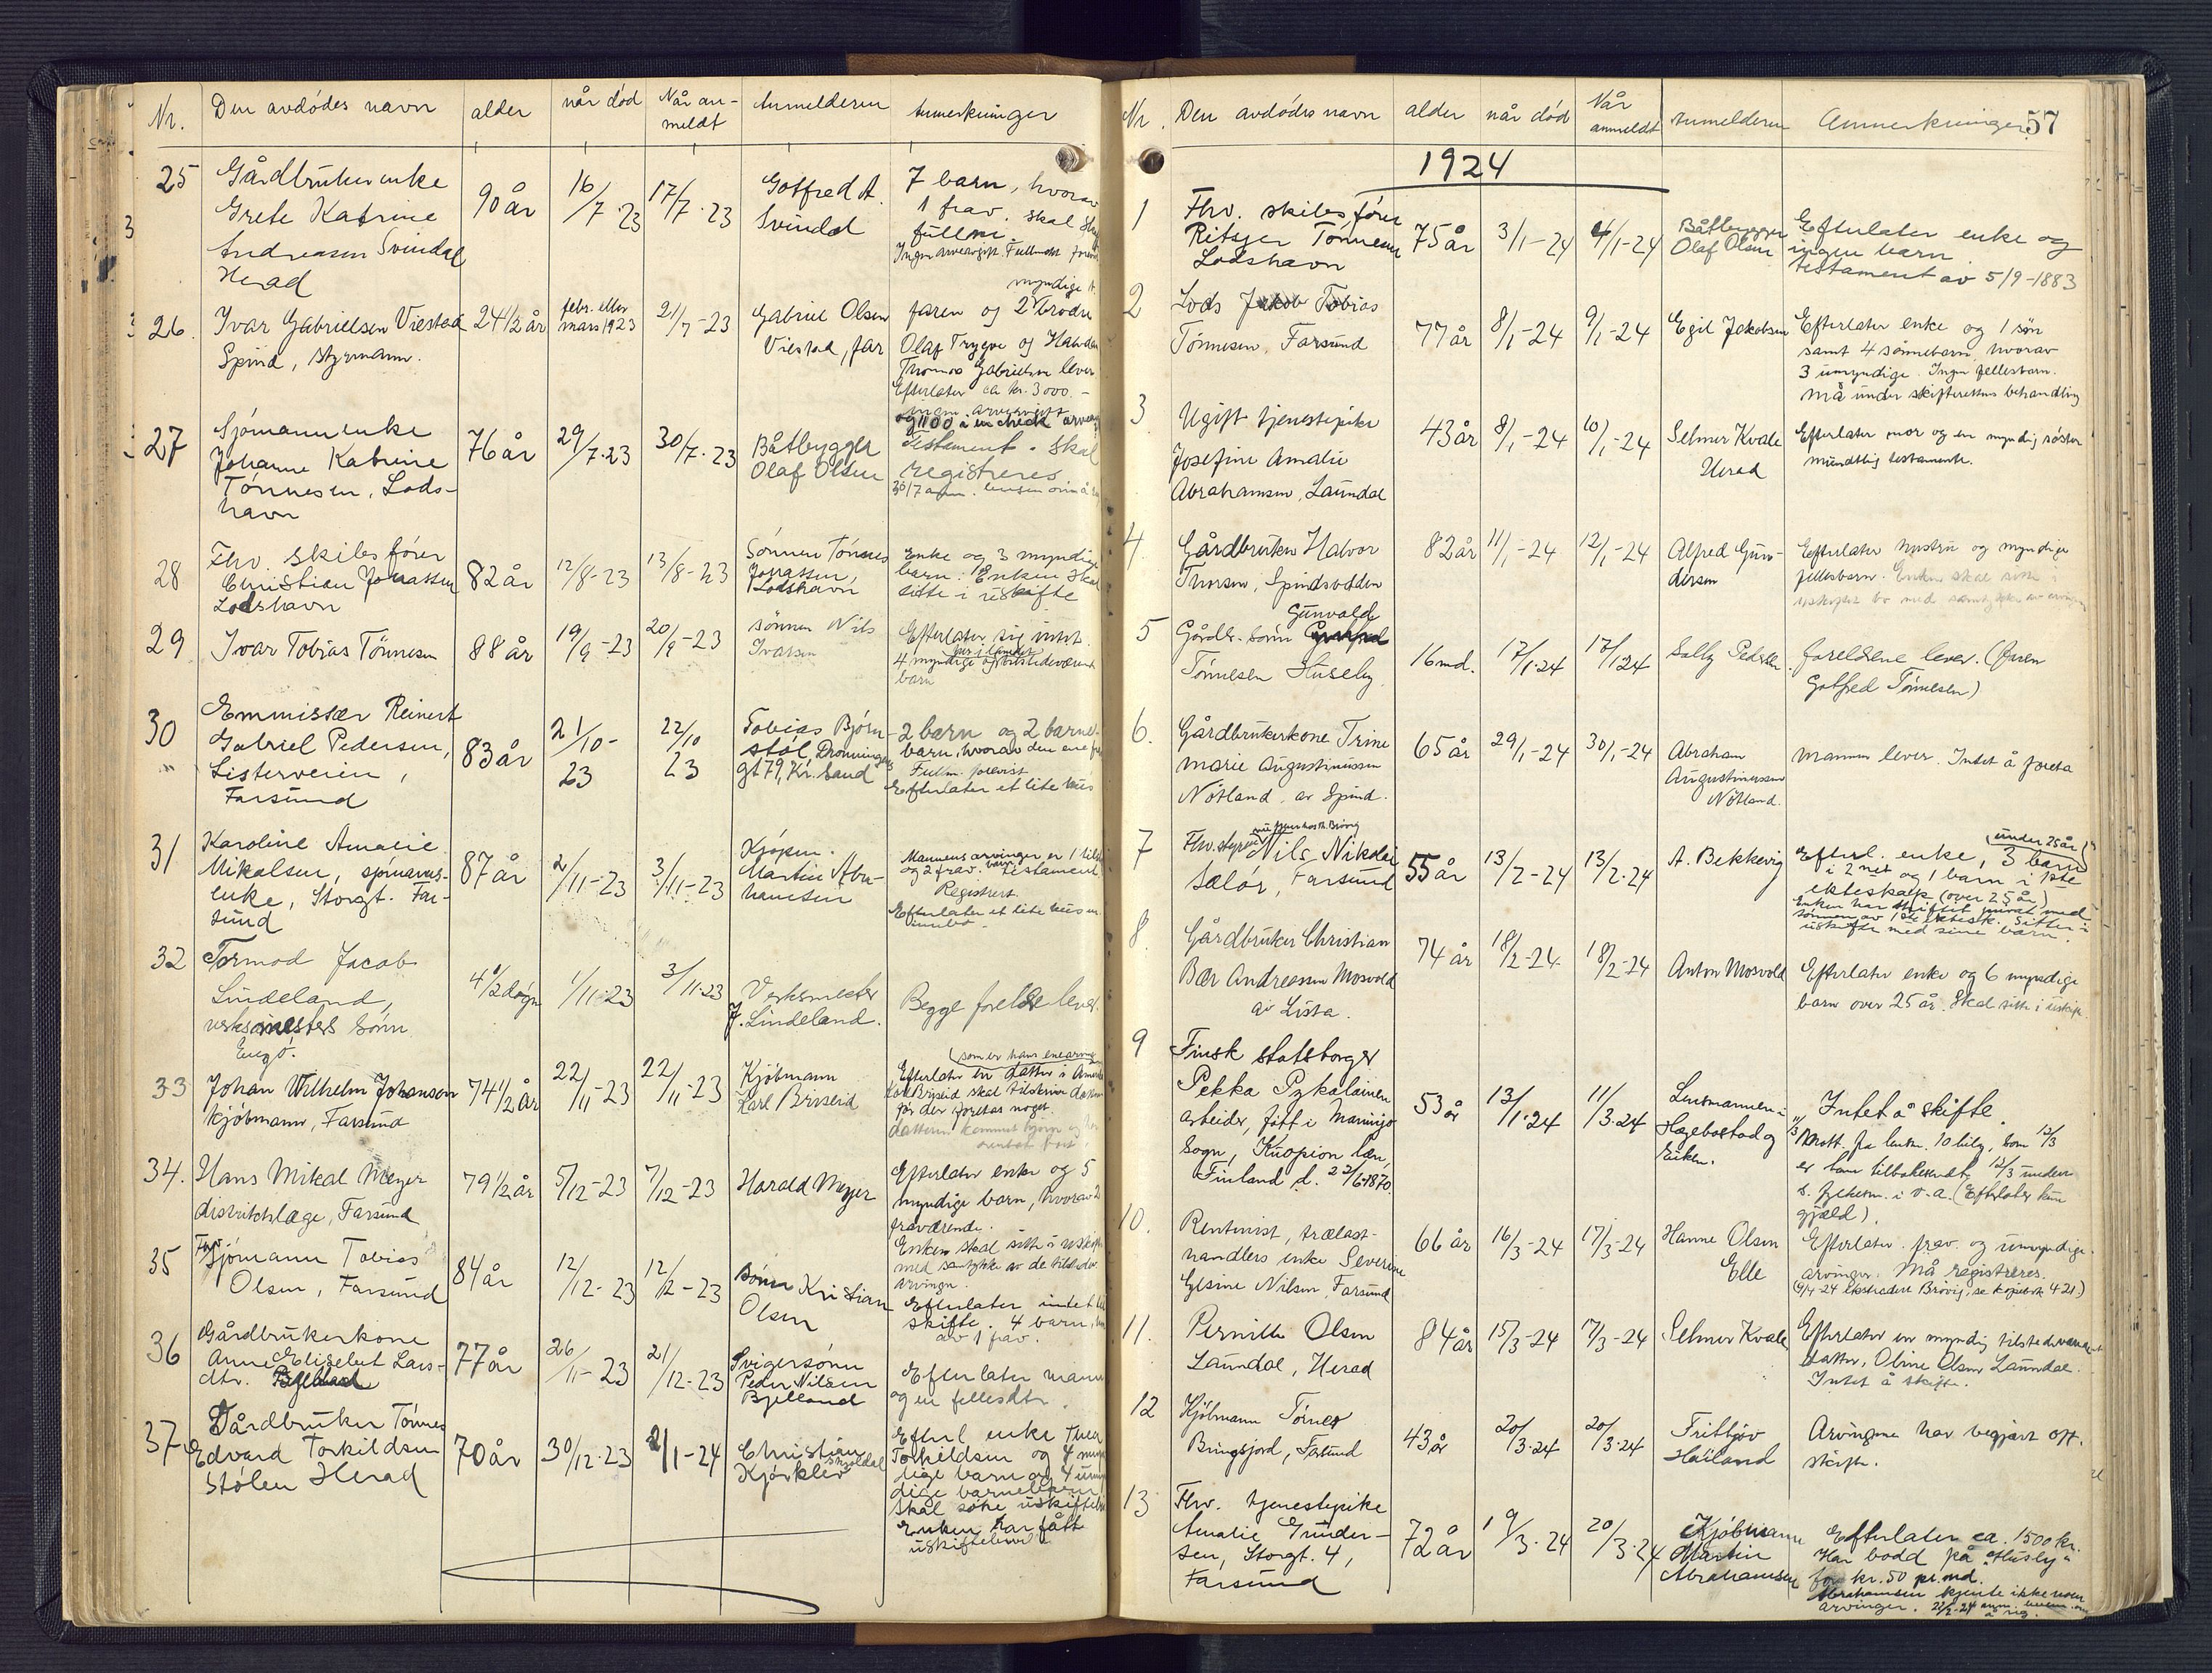 Nr. Den avdødes navn alder når død Når an-meldt Anmelderen Anmerkninger
25 Gårdbrukerenke 90 år 16/7·23 17/7·23 Gotfred A. 7 barn, hvorav
Grete Katrine Svindal 1 frav. skal
Andreasen Svindal fullm.
Herad Ingen arveavgift. Fullmakt
myndige
26. Ivar Gabrielsen Viestad 24 1/2 år febr. eller mars 1923 21/7-23 Gabriel Olsen faren og 2 brødre
Spind, styrmann. Viestad, far Olaf Trygve og
Thomas Gabrielsen lever
Efterlater ca kr. 3000.-
og 1100 i en check
27 Sjømannenke 76 år 29/7·23 30/7·23 Båtbygger Testament. Skal
Johanne Katrine Olaf Olsen registreres
Tønnesen, Lods-
havn
28 Fhv. skibsfører 82 år 12/8-23 13/8-23 Sønnen Tønnes Enke og 3 myndige
Christian Jonassen Jonassen, barn. Enken skal
Lodshavn Lodshavn sitte i uskifte
29 Ivar Tobias Tönnesen 88 år 19/9-23 20/9-23 sønnen Nils Efterlater sig intet.
Ivarsen 4 myndige og tilstedeværende
barn
30 Emmissær Reinert 83 år 21/10-23 22/10 23 Tobias Bjørn- 2 barn og 2 barne-
Gabriel Pedersen, støl, Dronningens barn, hvorav den ene
Listerveien, gt 79, Kr. Sand Fullm. forevist
Farsund Efterlater et lite hus
31 Karoline Amalie 87 år 2/11-23 3/11-23 Kjøpm. Mannens arvinger er 1
Mikalsen, sjømanns- Martin Abra- og 2 frav. barn. Testament
enke, Storgt. Far- hamsen Registrert
sund Efterlater et lite hus m.
innbo.
32 Tormod Jacob 4 1/2 døgn 1/11·23 3/11·23 Verksmester Begge foreldre lever.
Lindeland, J. Lindeland.
verksmesters sønn
Engø.
33 Johan Wilhelm Johansen 74 1/2 år 22/11-23 22/11-23 Kjøbmann (som er hans enearving
kjøbmann, Farsund Karl Briseid Efterlater en datter i Amerika
Karl Briseid skal tilskrive datteren
før der foretas noget.
34. Hans Mikal Meyer 79 1/2 år 5/12-23 7/12-23 Harald Meyer Efterlater enke og 5
distriktslæge, Farsund myndige barn, hvorav 2
fraværende.
Enken skal sitte i uskifte
med samtykke av de tilstedev.
arvinger.
35 Fhv. Sjømann Tobias 84 år 12/12-23 12/12-23 sønn Kristian Efterlater intet
Olsen, Farsund Olsen skifte. 4 barn,
av 1 frav.
36 Gårdbrukerkone 77 år 26/11-23 21/12-23 Svigersønn Efterlater mann
Anne Elisebet Lars- Peder Nilsen og en fellesdtr.
dtr. Bjelland Bjelland
37 Gårdbruker Tønnes 70 år 30/12·23 2/1-24 Christian Efterl enke
Edvard Torkildsen Kjørklev Torkildsen og 4 myn-
Stølen Herad dige barn og 4 umyn
dige barnebarn
skal søke uskifte
Enken har fått
uskiftebevil.
Nr. Den avdødes navn alder når død Når anmeldt Anmelderen Anmerkninger 57
1924
1 Fhv. skibsfører 75 år 3/1-24 4/1-24 Båtbygger Efterlater enke og
Ritsjer Tønnesen Olaf Olsen ingen barn
Lodshavn testament av 5/9-1883
2 Lods Jakob Tobias 77 år 8/1-24 9/1-24 Egil Jakobsen Efterlater enke og 1 søn
Tönnesen, Farsund samt 4 sønnebarn, hvorav
3 umyndige. Ingen fellesbarn.
Må under skifterettens behandling
3 Ugift tjenestepike 43 år 8/1-24 10/1-24 Selmer Kvale Efterlater mor og en myndig søster
Josefine Amalie Herad mundtlig testamente.
Abrahamsen, Laundal
4 Gårdbruker Halvor 82 år 11/1-24 12/1-24 Alfred Gun- Efterlater hustru og myndige
Thorsen, Spindsodden dersen fellesbarn. Enken skal sitte i
uskiftet bo med samtykke av
5 Gårdbr. sønn Gunvald 16 md. 17/1·24 17/1 24 Solly Pedersen foreldrene lever. (Faren
Tönnesen Huseby Gotfred Tönnesen)
6. Gårdbrukerkone Trine 65 år 29/1-24 30/1-24 Abraham mannen lever. Intet å foreta
marie Augustinussen Augustinussen
Nötland, av Spind. Nötland.
7 Fhv. styrm. Nils Nikolai 55 år 13/2-24 13/2·24 A. Bekkevig Efterl. enke, 3 barn (under 25 år)
Salør, Farsund i 2net og 1 barn i 1ste
ekteskap (over 25 år)
Enken har skiftet privat med
sønnen av 1ste ektesk. Sitter i
uskifte med sine barn.
8. Gårdbruker Christian 74 år 18/2-24 18/2-24 Anton Mosvold Efterlater enke og 6 myndige
Bær Andreassen Mosvold barn over 25 år. Skal sitte i uskifte
av Lista.
9 Finsk statsborger 53 år 13/1·24 11/3·24 Lensmannen i Intet å skifte.
Pekka Pykäläinen Hægebostad og
arbeider, født i Maninga Eiken.
sogn, Kuopion læn,
Finland d. 22/6 1870. (Efterlater kun
gjæld).
10. Rentenist, trælast- 66 år 16/3-24 17/3-24 Hanne Olsen Efterlater frav. og umyndige
handlers enke Severine Elle arvinger. Må registreres.
Elsine Nilsen, Farsund (4/4-24 ekstradere Brøvig, se kopibok 421.)
11. Pernille Olsen 84 år 15/3-24 17/3-24 Selmer Kvale Efterlater en myndig tilstedeværende
Laundal, Herad datter, Oline Olsen Laundal.
Intet å skifte.
12 Kjøbmann Tønnes 43 år 20/3·24 20/3·24 Trittjov Arvingene har begjært off.
Bringsjord, Farsund Hailand skifte.
13 Fhv. tjenestepike 72 år 19/3·24 20/3·24 Kjøbmann Efterlater ca. 1500 kr.
Amalie Gunder- Martin Har bodd på "Husly"
sen, Storgt. 4, Abrahamsen for kr. 50 pr. md.
Farsund Abrahamsen kjente ikke noen
arvinger.